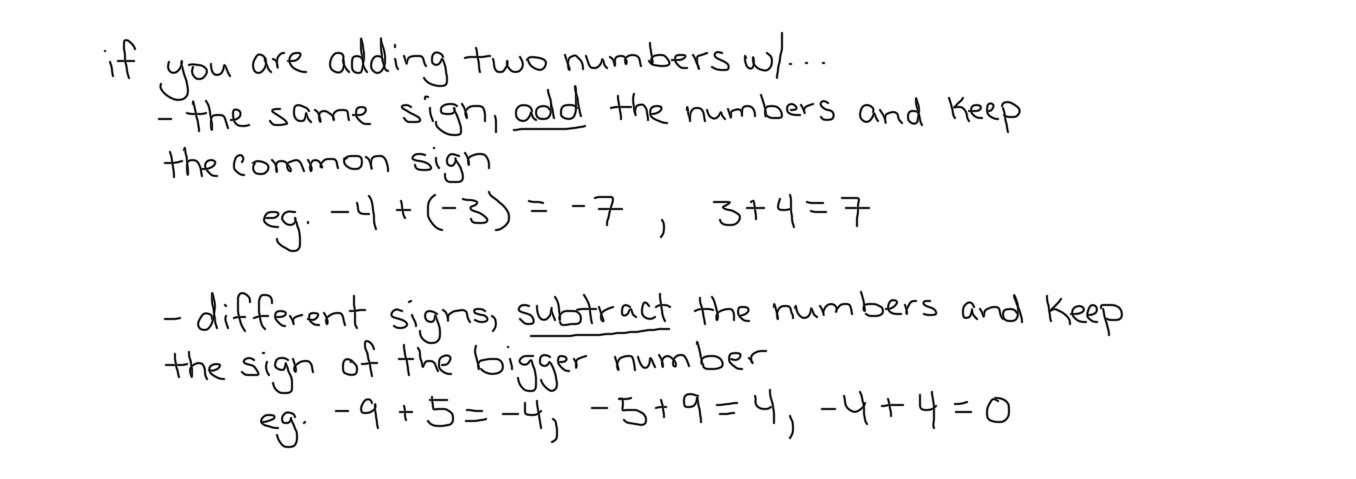 if you are adding two numbers w/...
- the same sign, add the numbers and keep
the common sign
eg. -4 + (-3) = -7 , 3+4=7
- different signs, subtract the numbers and keep
the sign of the bigger number
eg. -9 + 5 = -4, -5+9=4, -4+4=0